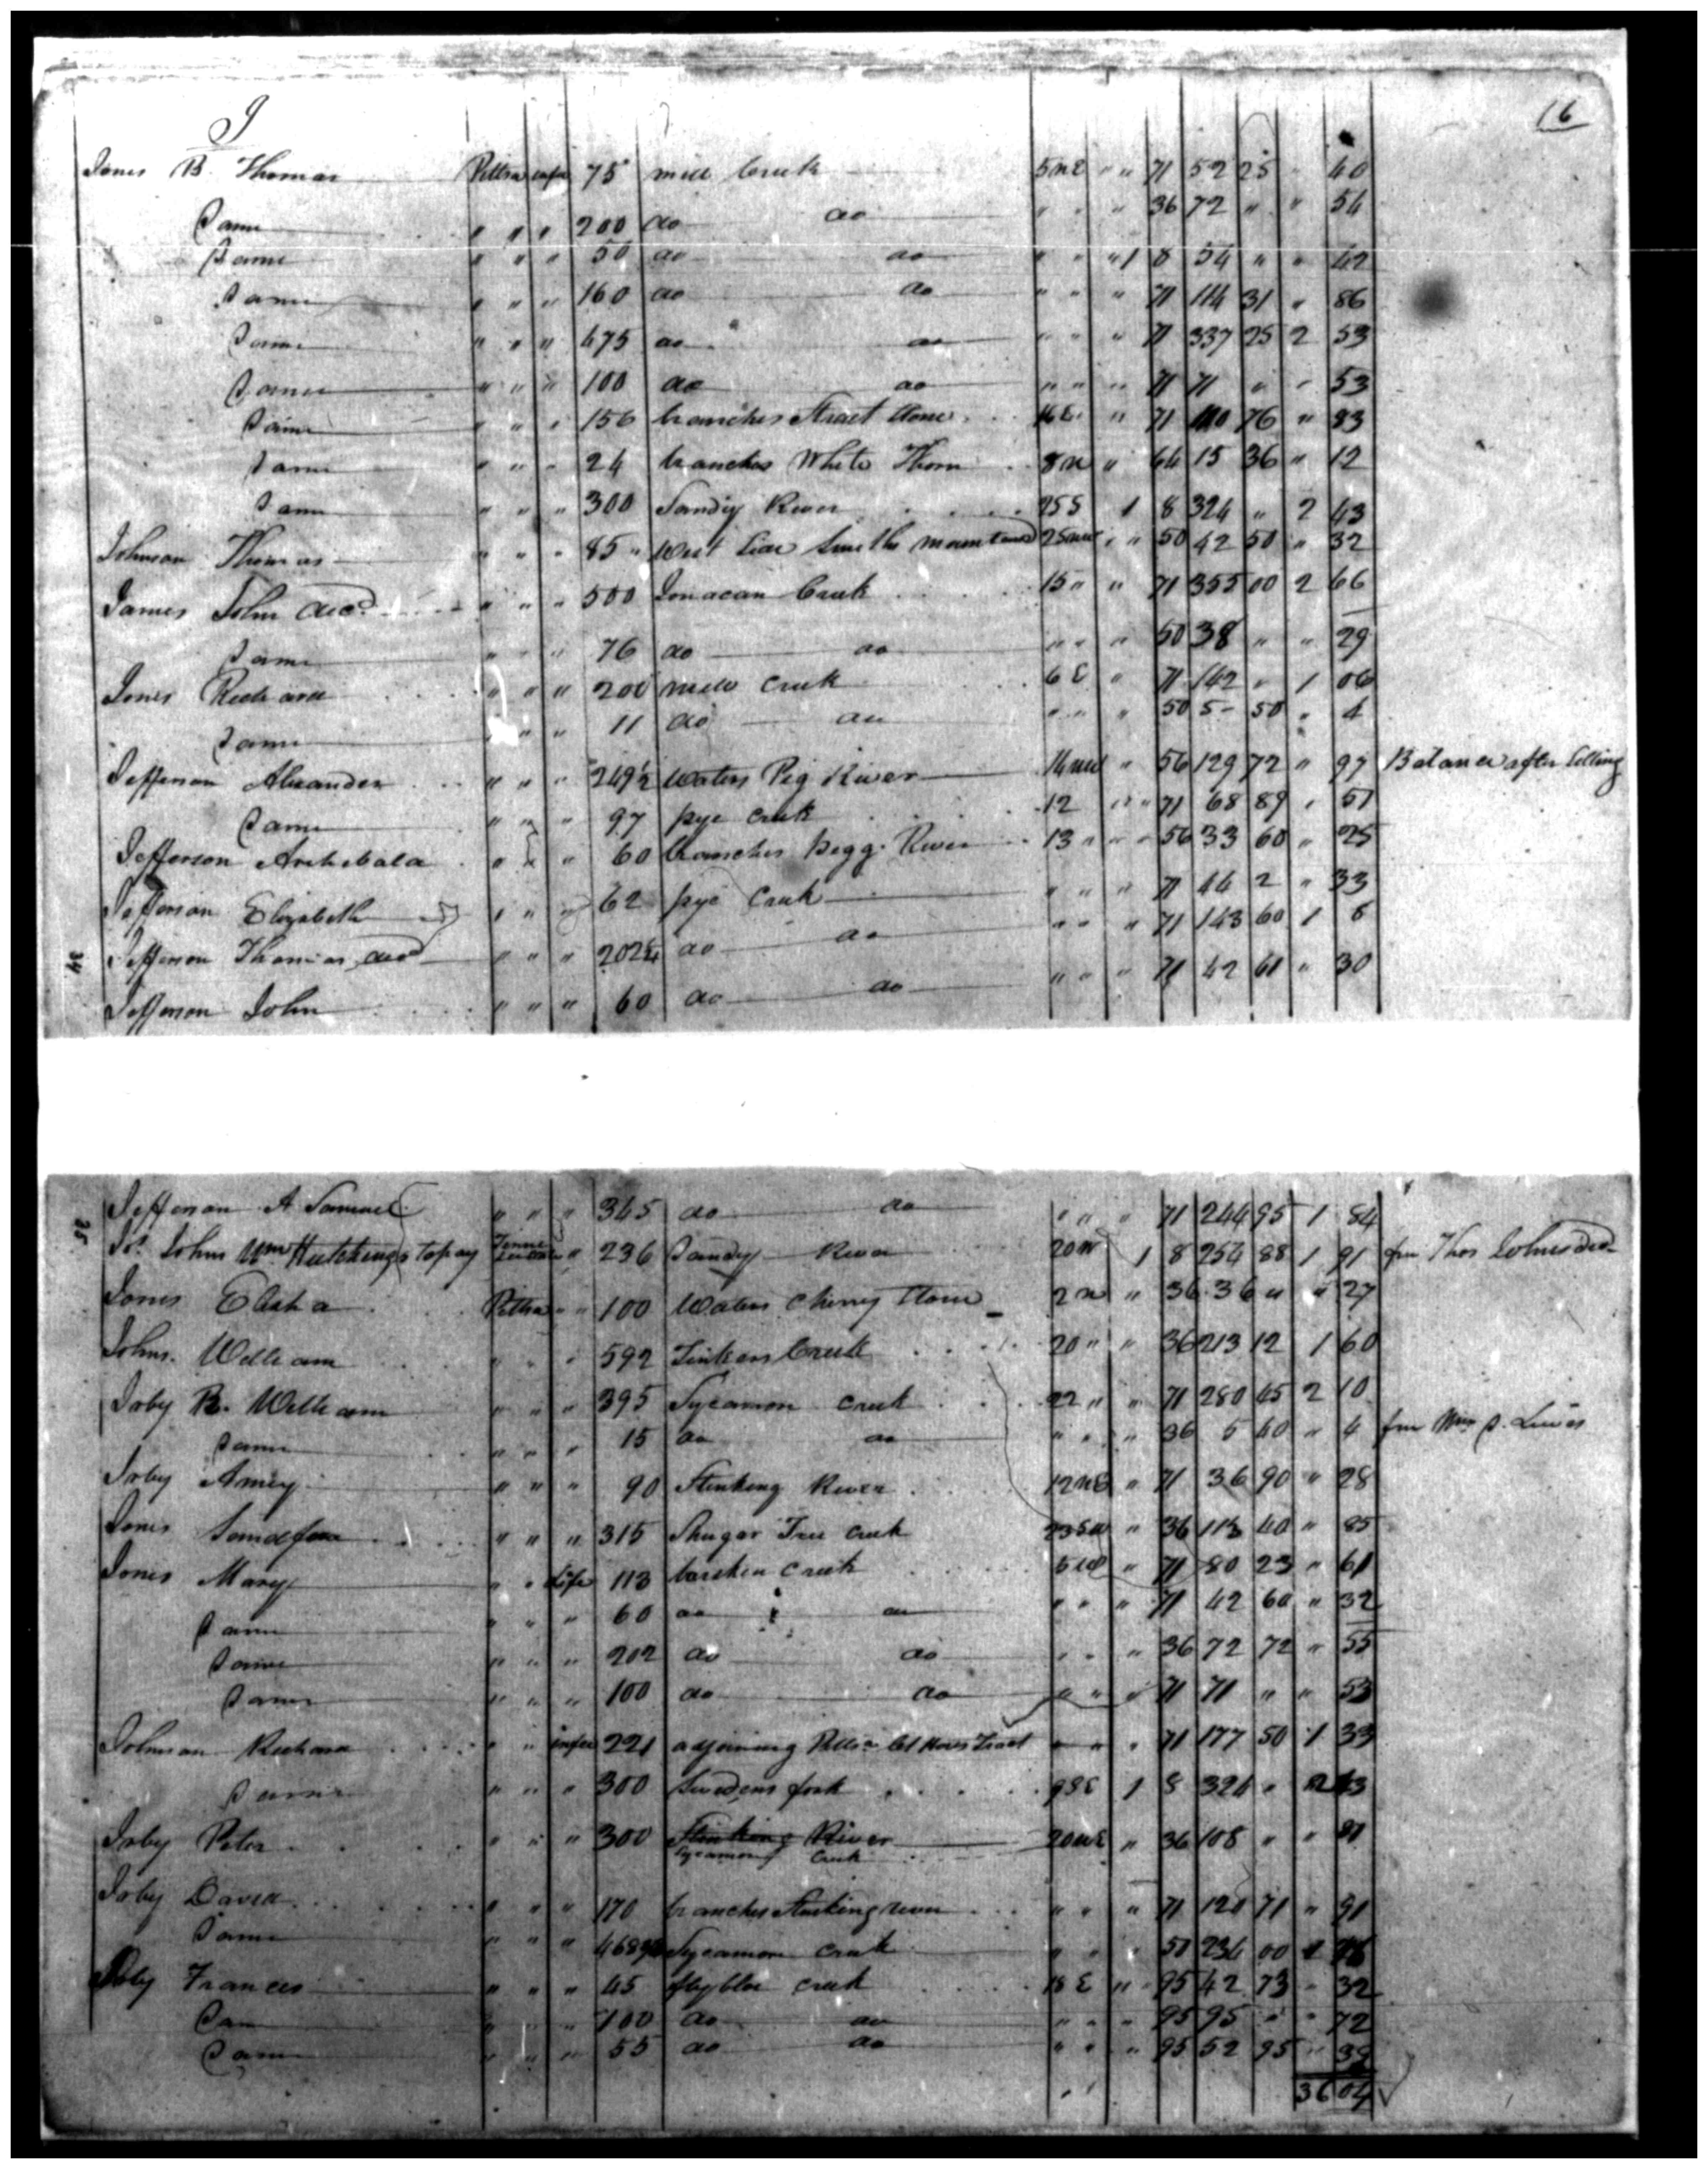 J 16
Jones B. Thomas Pittsa infee 75 mill Creek 5 n E " " 71 52 25 " 40
Same " " " 200 do do " " " 36 72 " " 54
Same " " " 50 do do " " " 1 8 54 " " 42
Same " " " 160 do do " " " 71 114 31 " 86
Same " " " 475 do do " " " 71 337 25 2 53
Same " " " 100 do do " " " 71 71 " " 53
Same " " " 156 branches Strait Stone 16 E " 71 110 76 " 83
Same " " " 24 branches White Thorn 8 n " 64 15 36 " 12
Same " " " 300 Sandy River 25 S 1 8 324 " 2 43
Johnson Thomas " " " 85 West Side Smiths mountain 25 nw " 50 42 50 " 32
James John decd " " " 500 Tomacan Creek 15 " " 71 355 00 2 66
Same " " " 76 do do " " " 50 38 " " 29
Jones Richard " " " 200 mill Creek 6 E " 71 142 " 1 06
Same " " " 11 do do " " " 50 5 50 " 4
Jefferson Alexander " " " 249½ Waters Pig River 14 nw " 56 129 72 " 97 Balance after Selling
Same " " " 97 pye Creek 12 " " 71 68 89 " 51
Jefferson Archibald " " " 60 branches Pigg River 13 " " 56 33 60 " 25
Jefferson Elizabeth " " " 62 pye Creek " " " 71 44 2 " 33
Jefferson Thomas decd " " " 202¼ do do " " " 71 143 60 1 8
34
Jefferson John " " " 60 do do " " " 71 42 61 " 30
Jefferson A Samuel " " " 345 do do " " " 71 244 95 1 84
35
Johns Wm Hutchings to pay Tenne " 236 Sandy River 20 W 1 8 254 88 1 91 frm Thos Johns decd
Jones Elisha Pittsa " " 100 Waters Cherry Stone 2 n " 36 36 " " 27
Johns William " " " 592 Tinkers Creek 20 " " 36 213 12 1 60
Irby B. William " " " 395 Sycamore Creek 22 " " 71 280 45 2 10
Same " " " 15 do do " " " 36 5 40 " 4 frm Wm S. Lewis
Irby Amey " " " 90 Stinking River 12 n E " 71 36 90 " 28
Jones " " " 315 Shugar Tree Creek 23 SW " 36 113 40 " 85
Jones Mary " " Life 113 barskin Creek 5 W " 71 80 23 " 61
Same " " " 60 do do " " " 71 42 60 " 32
Same " " " 202 do do " " " 36 72 72 " 55
Same " " " 100 do do " " " 71 71 " " 53
Johnson Richard " " infee 221 adjoining Tract " " " 71 177 50 1 33
Same " " " 300 fork 9 SE 1 8 324 " 2 43
Irby Peter " " " 300 Stinking River 20 n E " 36 108 " " 81
Sycamore Creek
Irby David " " " 170 branches Stinking river " " " 71 120 71 " 91
Same " " " 468 Sycamore Creek " " " 50 234 00 1
Irby Frances " " " 45 flyblow Creek 18 E " 95 42 73 " 32
Sam " " " 100 do do " " " 95 95 " " 72
Same " " " 55 do do " " " 95 52 95 " 39
36 04